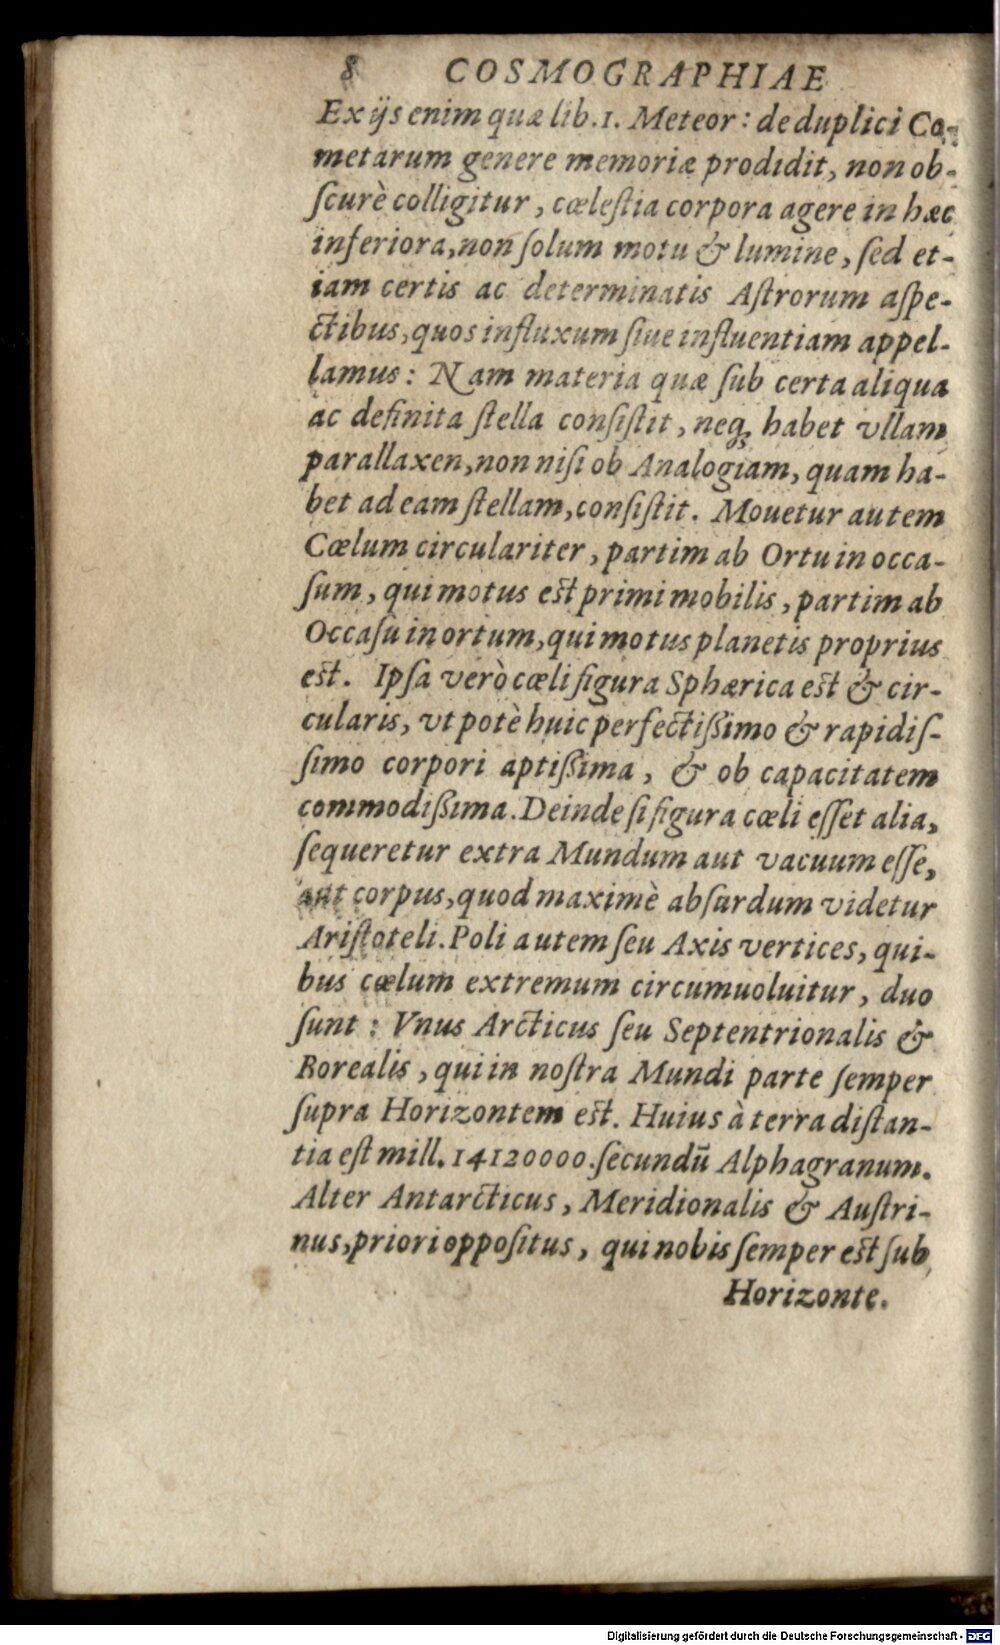 8 COSMOGRAPHIAE
Ex ijs enim quæ lib. 1. Meteor: de duplici Co-
metarum genere memoriæ prodidit, non ob-
ſcurè colligitur, cœleſtia corpora agere in hæc
inferiora, non ſolum motu & lumine, ſed et-
iam certis ac determinatis Aſtrorum aſpe-
ctibus, quos influxum ſiue influentiam appel-
lamus: Nam materia quæ ſub certa aliqua
ac definita ſtella conſiſtit, neqꝫ habet vllam
parallaxen, non niſi ob Analogiam, quam ha-
bet ad eam ſtellam, conſiſtit. Mouetur autem
Cœlum circulariter, partim ab Ortu in occa-
ſum, qui motus eſt primi mobilis, partim ab
Occaſu in ortum, qui motus planetis proprius
eſt. Ipſa verò cœli figura Sphærica eſt & cir-
cularis, vt potè huic perfectißimo & rapidiſ-
ſimo corpori aptißima, & ob capacitatem
commodißima. Deinde ſi figura cœli eſſet alia,
ſequeretur extra Mundum aut vacuum eſſe,
aut corpus, quod maximè abſurdum videtur
Ariſtoteli. Poli autem ſeu Axis vertices, qui-
bus cœlum extremum circumuoluitur, duo
ſunt: Vnus Arcticus ſeu Septentrionalis &
Borealis, qui in noſtra Mundi parte ſemper
ſupra Horizontem eſt. Huius à terra diſtan-
tia eſt mill. 14120000. ſecundū Alphagranum.
Alter Antarcticus, Meridionalis & Auſtri-
nus, priori oppoſitus, qui nobis ſemper eſt ſub
Horizonte.
Digitalisierung gefördert durch die Deutsche Forschungsgemeinschaft - DFG